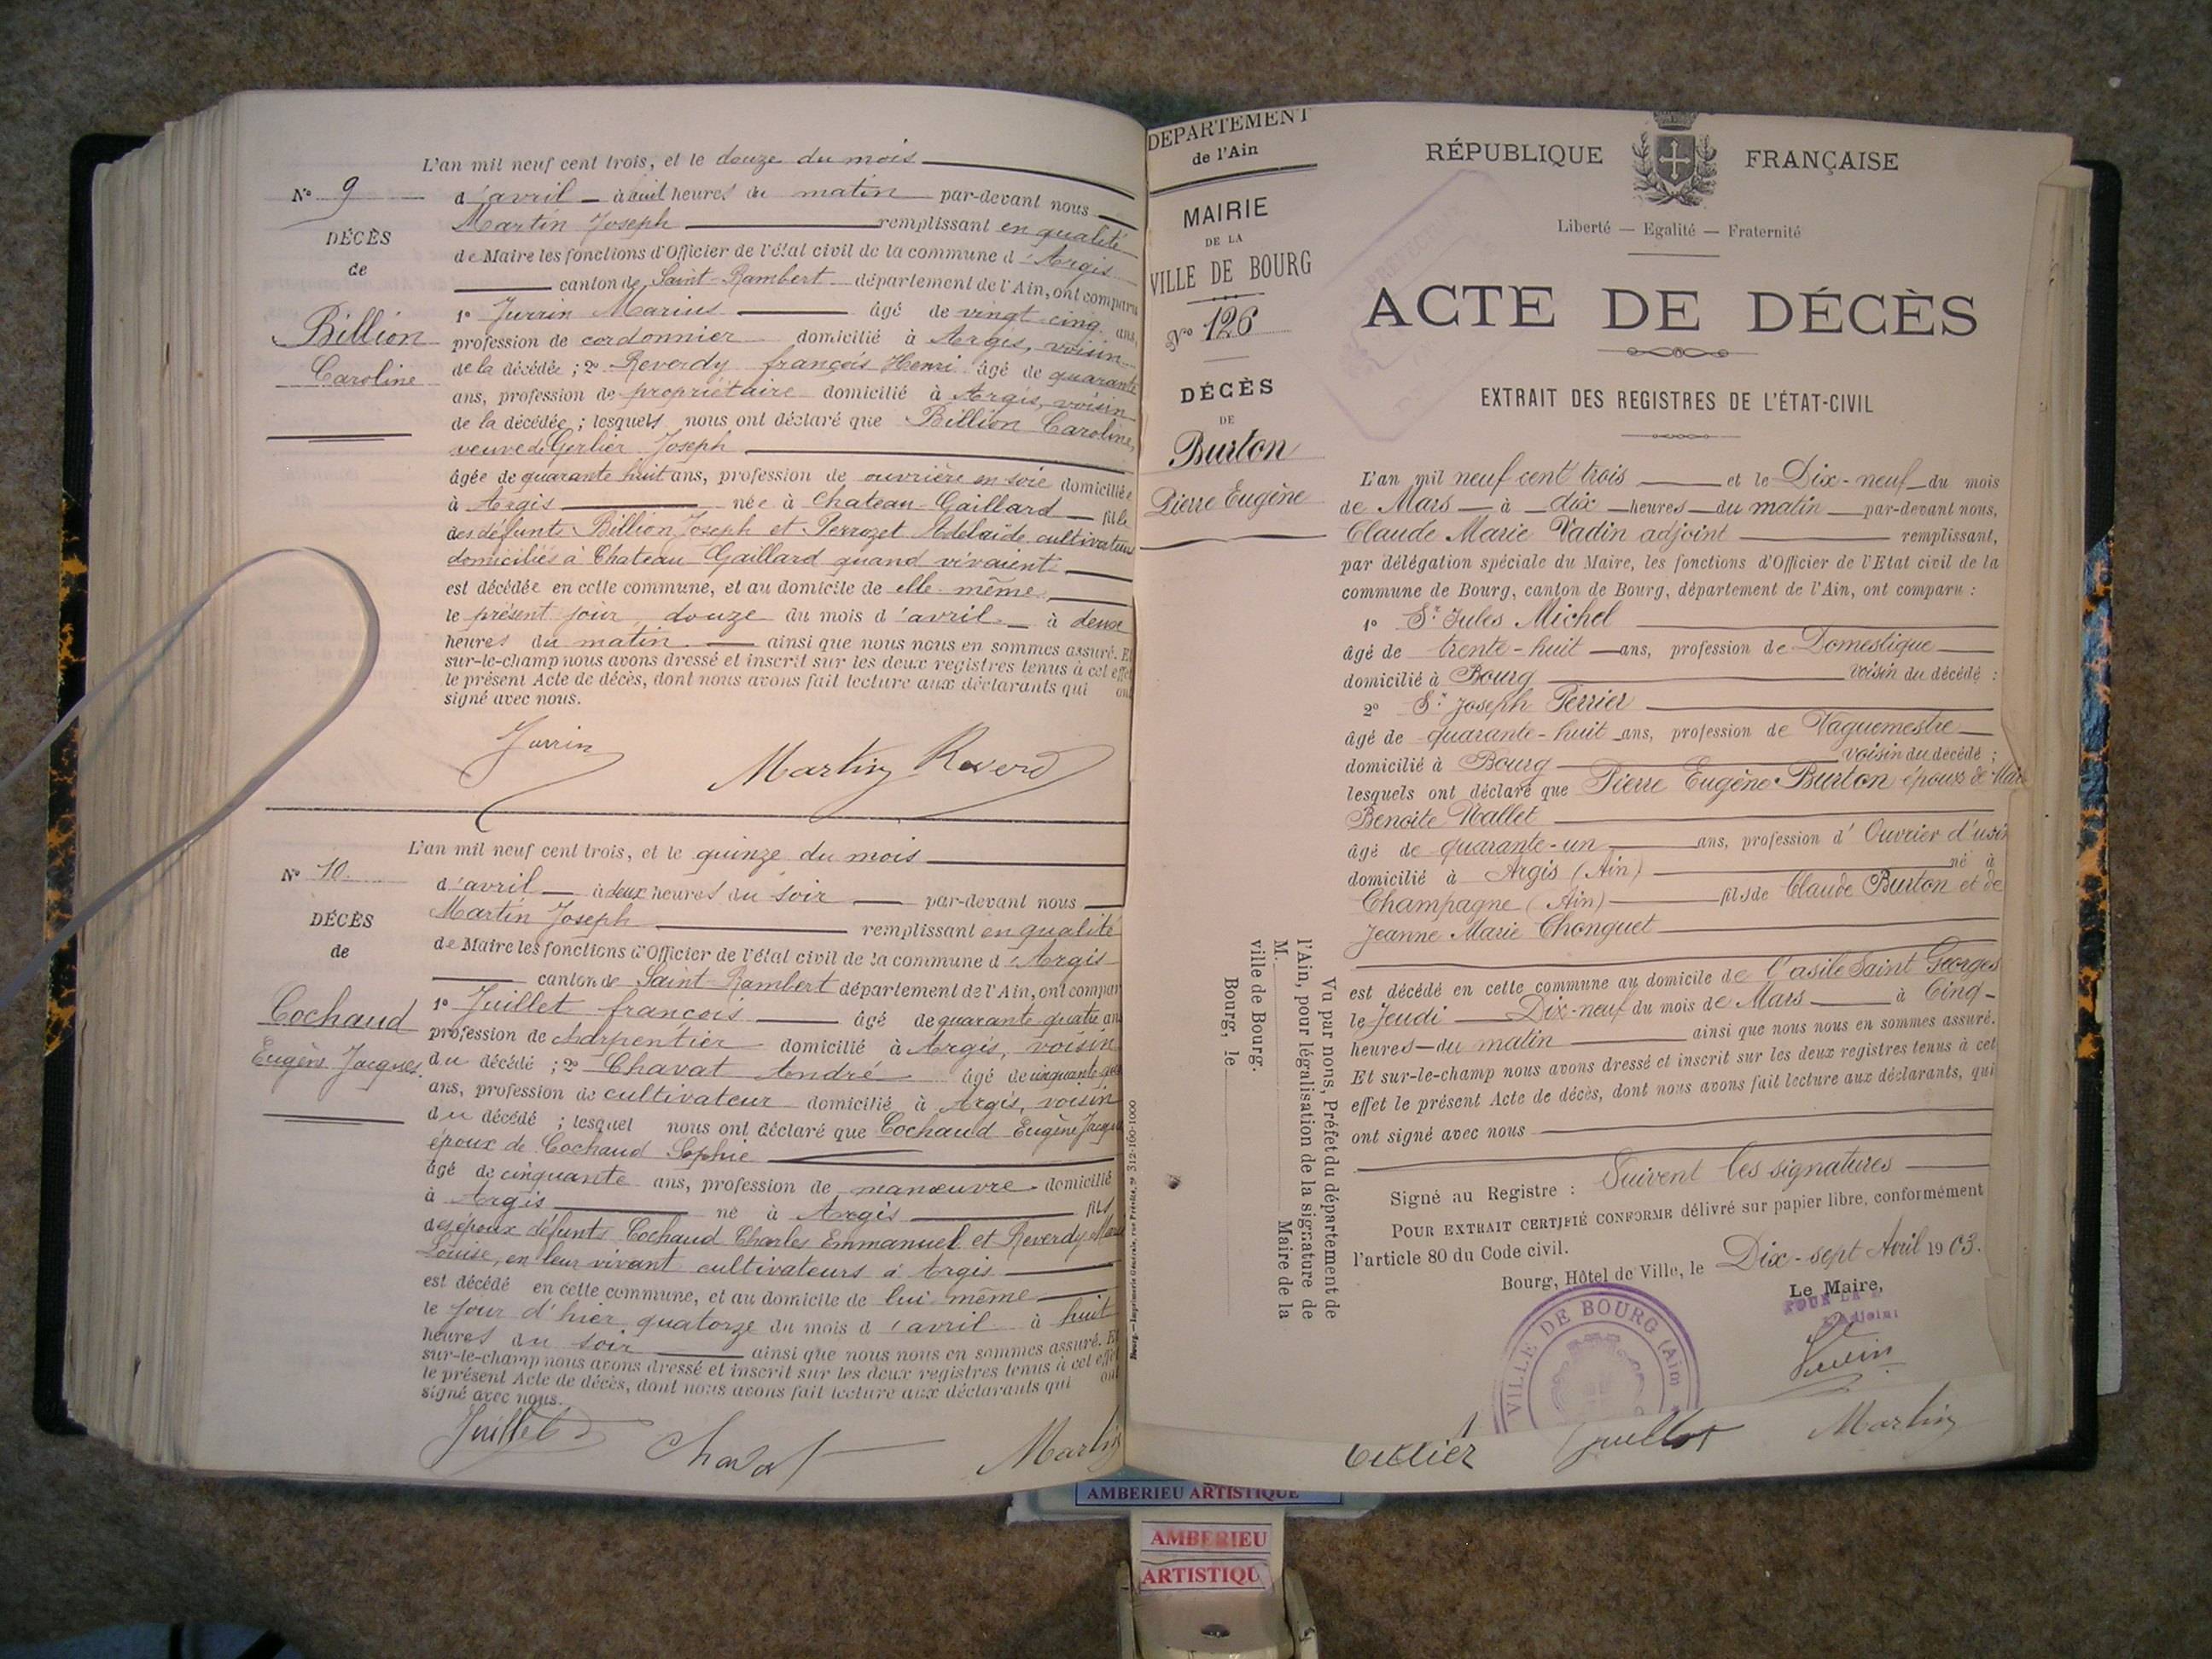 L'an mil neuf cent trois, et le douze du mois
N° 9
d'avril à huit heures du matin par-devant nous
Martin Joseph remplissant en qualité
DÉCÈS
de Maire les fonctions d'Officier de l'état civil de la commune d'Argis
de
canton de Saint-Rambert département de l'Ain, ont comparu
Billion
Caroline
1° Jurrin Marius âgé de vingt cinq ans,
profession de cordonnier domicilié à Argis, voisin
de la décédée ; 2° Reverdy françois Henri âgé de quarante
ans, profession de propriétaire domicilié à Argis, voisin
de la décédée ; lesquels nous ont déclaré que Billion Caroline,
veuve de Gerlier Joseph
âgée de quarante huit ans, profession de ouvrière en soie domiciliée
à Argis née à Chateau-Gaillard fille
des défunts Billion Joseph et Perrozet Adelaïde cultivateurs
domiciliés à Chateau Gaillard quand vivaient
est décédée en cette commune, et au domicile de elle même
le présent jour, douze du mois d'avril à deux
heures du matin ainsi que nous nous en sommes assuré. Et
sur-le-champ nous avons dressé et inscrit sur les deux registres tenus à cet effet
le présent Acte de décès, dont nous avons fait lecture aux déclarants qui ont
signé avec nous.
Jurrin
Martin Reverd
L'an mil neuf cent trois, et le quinze du mois
N° 10.
d'avril à deux heures du soir par-devant nous
Martin Joseph remplissant en qualité
DÉCÈS
de Maire les fonctions d'Officier de l'état civil de la commune d'Argis
de
canton de Saint-Rambert département de l'Ain, ont comparu
Cochaud
Eugène Jacques
1° Juillet françois âgé de quarante quatre ans
profession de charpentier domicilié à Argis, voisin
du décédé ; 2° Chavat André âgé de cinquante
ans, profession de cultivateur domicilié à Argis, voisin
du décédé ; lesquel nous ont déclaré que Cochaud Eugène Jacques
époux de Cochaud Sophie
âgé de cinquante ans, profession de manœuvre domicilié
à Argis né à Argis fils
des époux défunts Cochaud Charles Emmanuel et Reverdy Marie
Louise, en leur vivant cultivateurs à Argis
est décédé en cette commune, et au domicile de lui même
le jour d'hier quatorze du mois d'avril à huit
heures du soir ainsi que nous nous en sommes assuré. Et
sur-le-champ nous avons dressé et inscrit sur les deux registres tenus à cet effet
le présent Acte de décès, dont nous avons fait lecture aux déclarants qui ont
signé avec nous.
Juillet Chavat Martin
DEPARTEMENT
de l'Ain
MAIRIE
DE LA
VILLE DE BOURG
N° 126
DÉCÈS
DE
Burton
Pierre Eugène
Vu par nous, Préfet du département de
l'Ain, pour légalisation de la signature de
M. Maire de la
ville de Bourg.
Bourg, le
RÉPUBLIQUE FRANÇAISE
Liberté — Egalité — Fraternité
ACTE DE DÉCÈS
EXTRAIT DES REGISTRES DE L'ÉTAT-CIVIL
L'an mil neuf cent trois et le Dix-neuf du mois
de Mars à dix heures du matin par-devant nous,
Claude Marie Vadin adjoint remplissant,
par délégation spéciale du Maire, les fonctions d'Officier de l'Etat civil de la
commune de Bourg, canton de Bourg, département de l'Ain, ont comparu :
1° Sr Jules Michel
âgé de trente-huit ans, profession de Domestique
domicilié à Bourg voisin du décédé :
2° Sr Joseph Perrier
âgé de quarante-huit ans, profession de Vaguemestre
domicilié à Bourg voisin du décédé ;
lesquels ont déclaré que Pierre Eugène Burton époux de Marie
Benoite Vallet
âgé de quarante-un ans, profession d'Ouvrier d'usin
domicilié à Argis (Ain) né à
Champagne (Ain) fils de Claude Burton et de
Jeanne Marie Chonguet
est décédé en cette commune au domicile de l'asile Saint Georges
le jeudi Dix-neuf du mois de Mars à Cinq-
heures du matin ainsi que nous nous en sommes assuré.
Et sur-le-champ nous avons dressé et inscrit sur les deux registres tenus à cet
effet le présent Acte de décès, dont nous avons fait lecture aux déclarants, qui
ont signé avec nous
Signé au Registre : Suivent les signatures
POUR EXTRAIT CERTIFIÉ CONFORME délivré sur papier libre, conformément
l'article 80 du Code civil.
Bourg, Hôtel de Ville, le Dix-sept Avril 1903.
Le Maire,
VILLE DE BOURG (Ain)
Juillet Martin
AMBERIEU ARTISTIQUE
AMBERIEU
ARTISTIQU